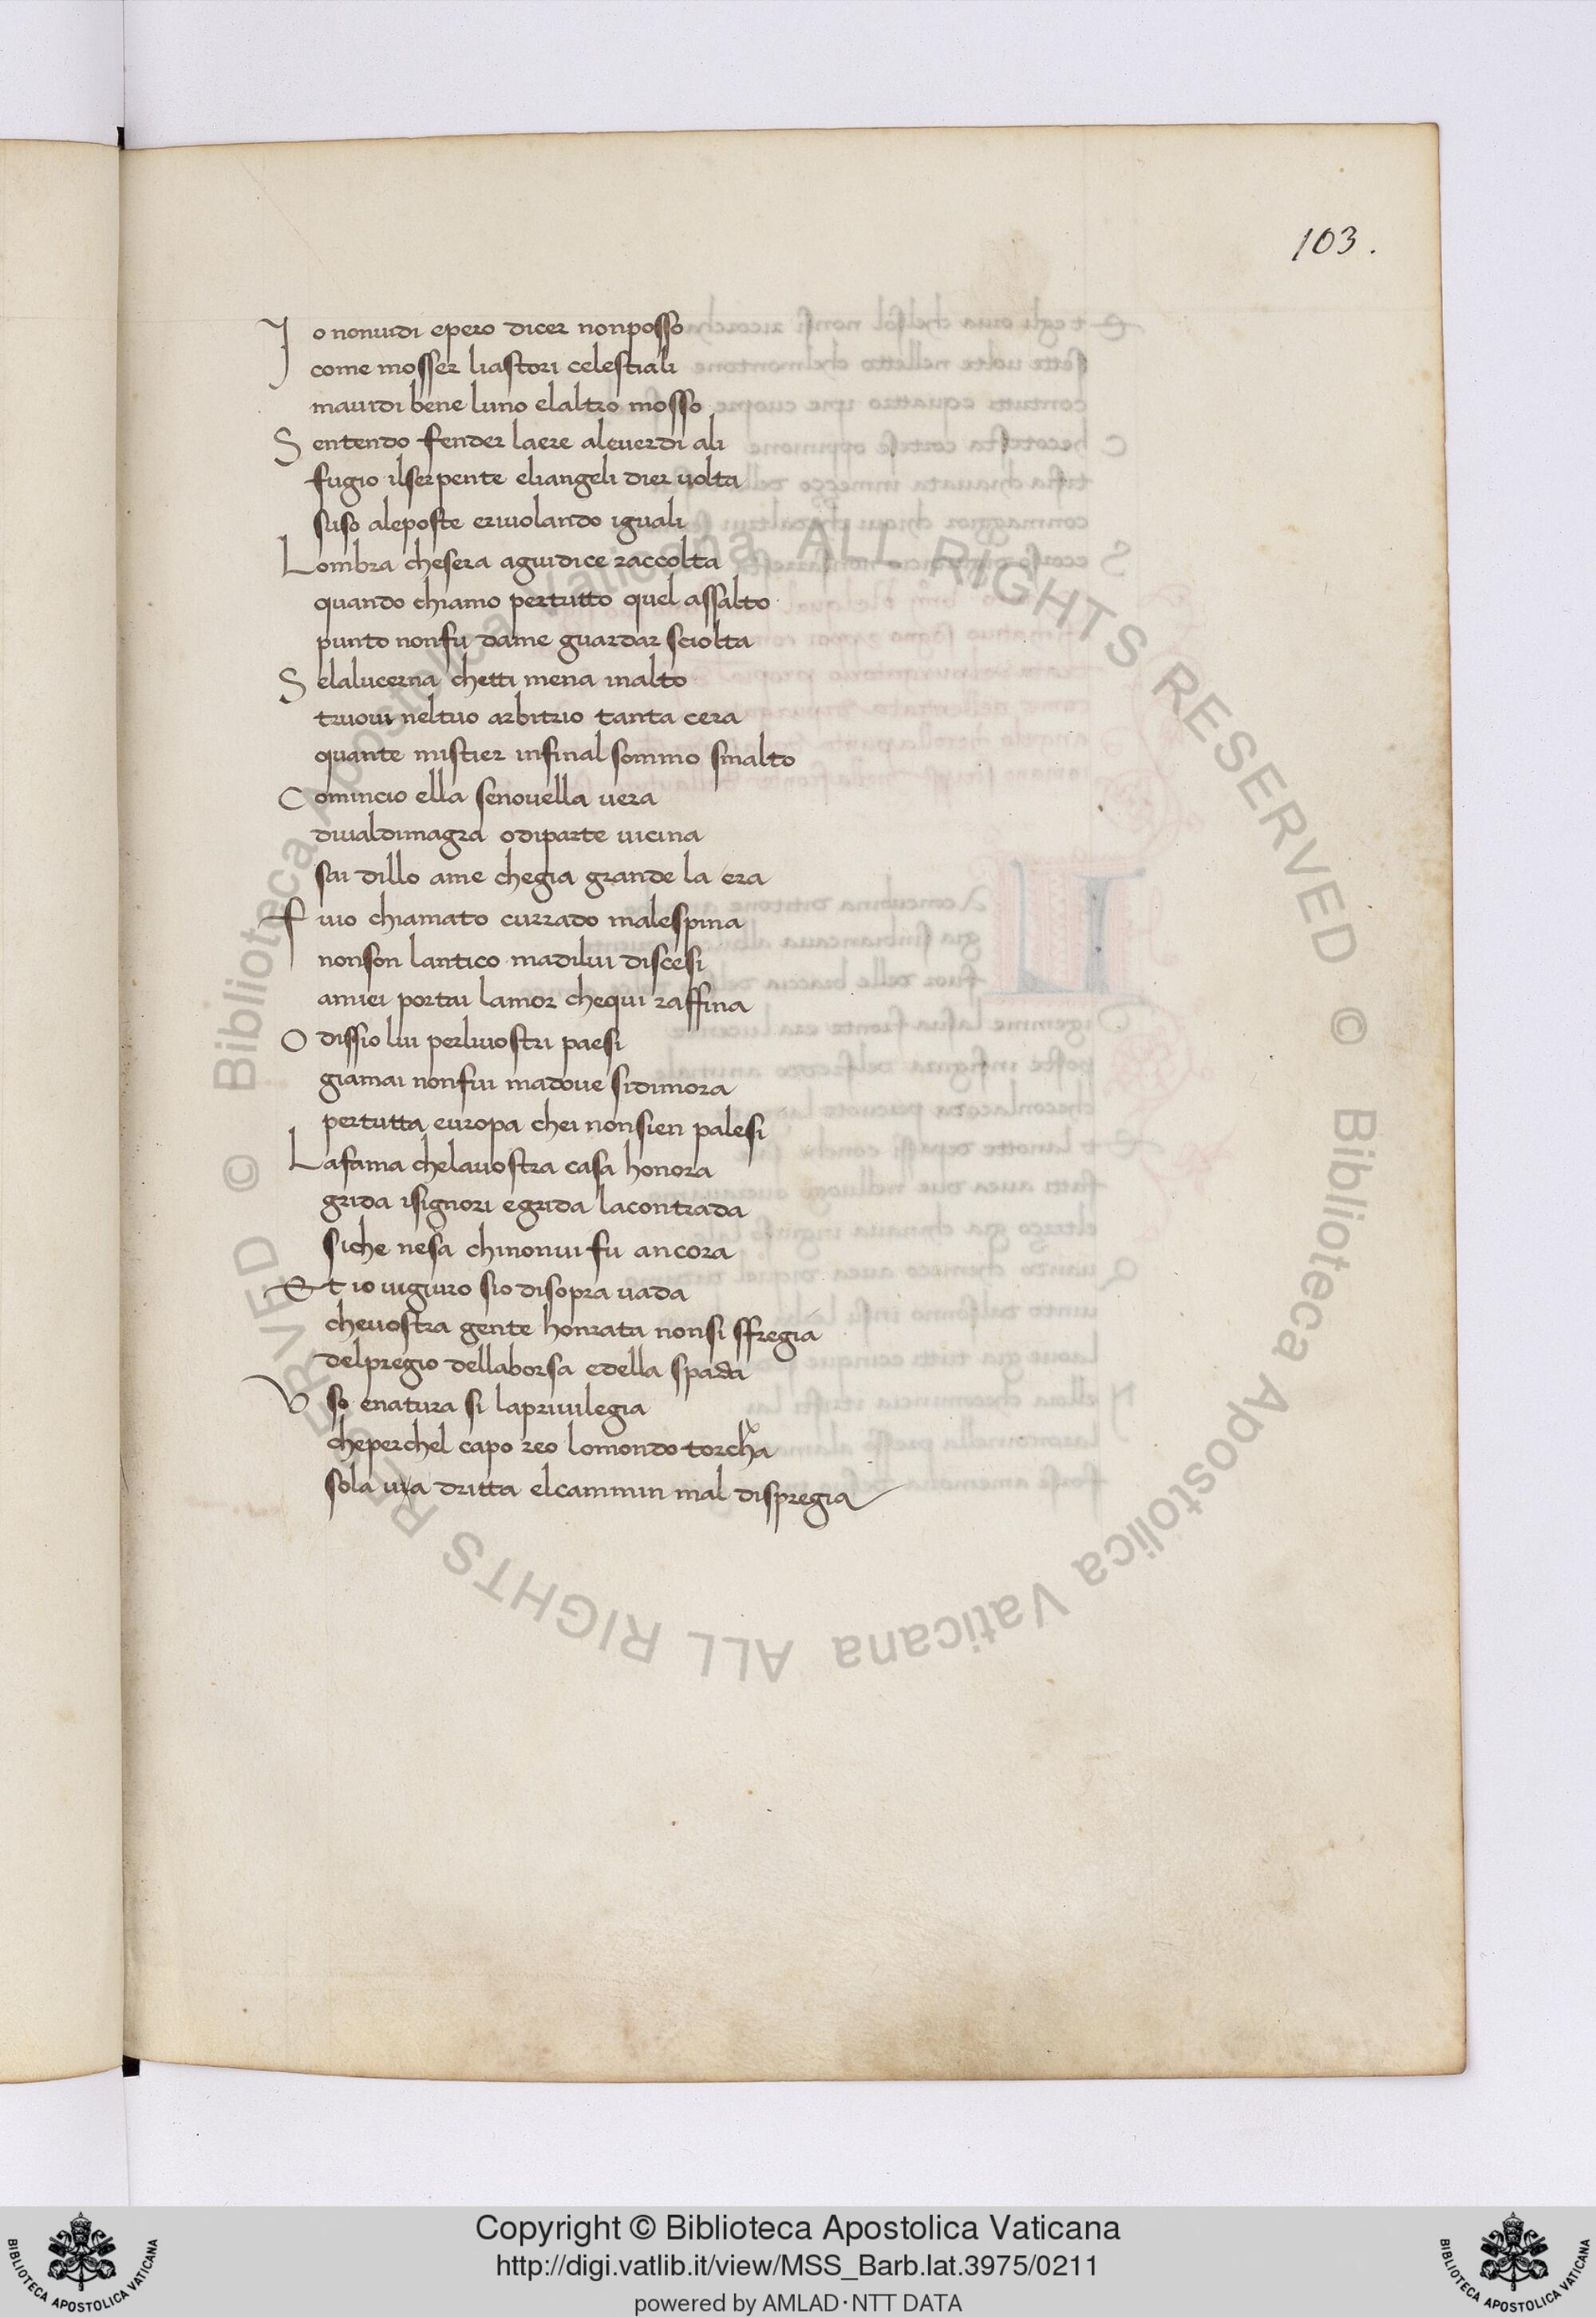 103.
Io nonuidi epero dicer nonposso
come mosser liastori celestiali
mauidi bene luno elaltro mosso
Sentendo fender laere aleuerdi ali
fugio ilserpente eliangeli dier uolta
suso aleposte eriuolando iguali
Lombra chesera aguidice raccolta
quando chiamo pertutto quel assalto
punto nonfu dame guardar sciolta
Selalucerna chetti mena inalto
truoui neltuo arbitrio tanta cera
quante mistier infinal sommo smalto
Comincio ella senouella uera
diualdimagra odiparte uicina
sai dillo ame chegia grande la era
Fuio chiamato currado malespina
nonson lantico madilui discesi
amiei portai lamor chequi raffina
O dissio lui perliuostri paesi
giamai nonfui madoue sidimora
pertutta europa chei nonsien palesi
Lafama chelauostra casa honora
grida isignori egrida lacontrada
siche nesa chinonui fu ancora
Et io uiguro sio disopra uada
cheuostra gente honrata nonsi sfregia
delpregio dellaborsa edella spada
Uso enatura si lapriuilegia
cheperchel capo reo lomondo torcha
sola uia dritta elcammin mal dispregia
© Biblioteca Apostolica Vaticana ALL RIGHTS RESERVED © Biblioteca Apostolica Vaticana ALL RIGHTS RESERVED
BIBLIOTECA APOSTOLICA VATICANA
Copyright © Biblioteca Apostolica Vaticana
http://digi.vatlib.it/view/MSS_Barb.lat.3975/0211
powered by AMLAD·NTT DATA
BIBLIOTECA APOSTOLICA VATICANA